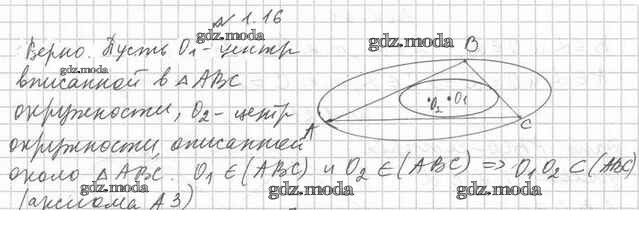 № 1.16
Верно. Пусть O₁ - центр
вписанной в △ABC
окружности, O₂ - центр
окружности, описанной
около △ABC. O₁ ∈ (ABC) и O₂ ∈ (ABC) => O₁O₂ ⊂ (ABC)
(аксиома А3)
A
B
C
O₂
O₁
gdz.moda
gdz.moda
gdz.moda
gdz.moda
gdz.moda
gdz.moda
gdz.moda